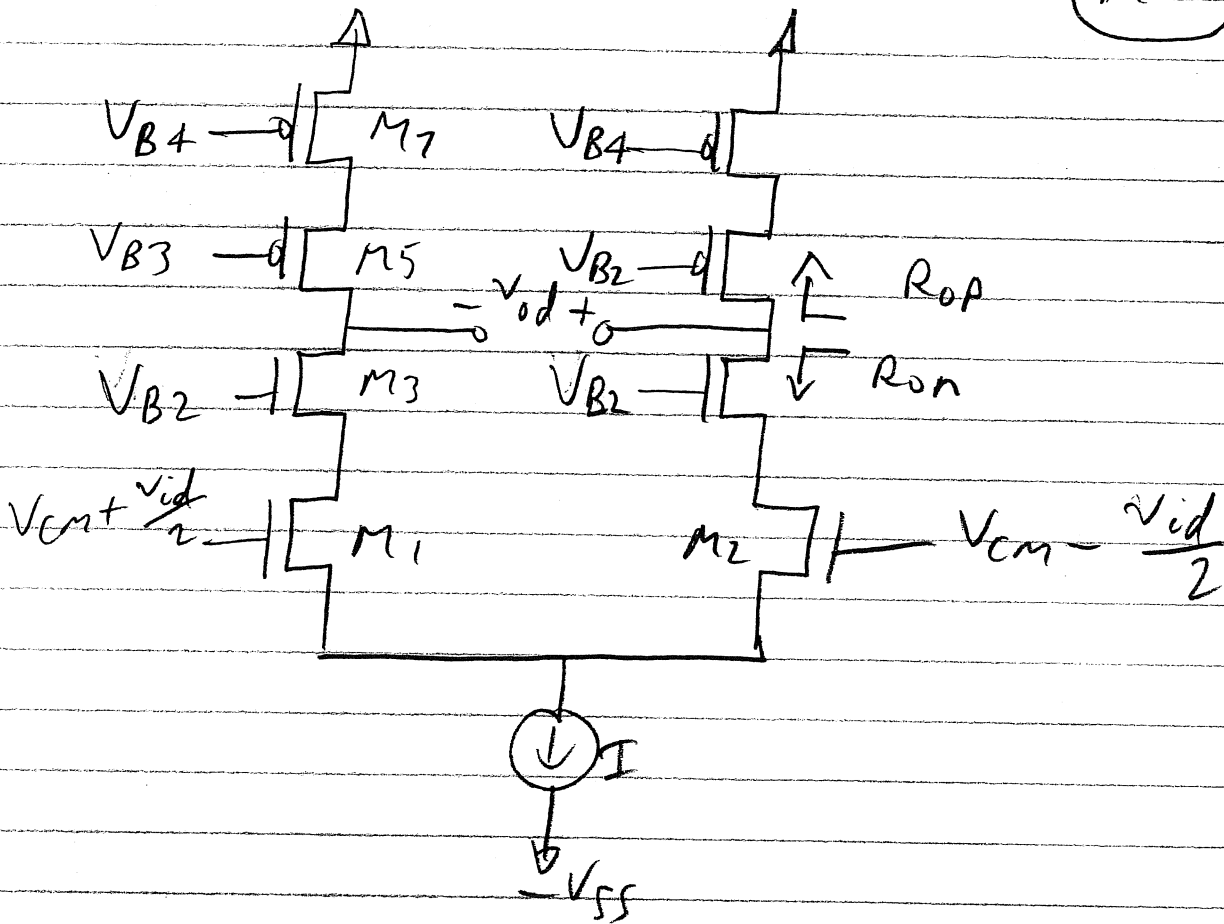 VB4 M7 VB4
VB3 M5 VB2 Rop
- vod +
VB2 M3 VB2 Ron
VCM + vid/2 M1 M2 VCM - vid/2
I
-VSS